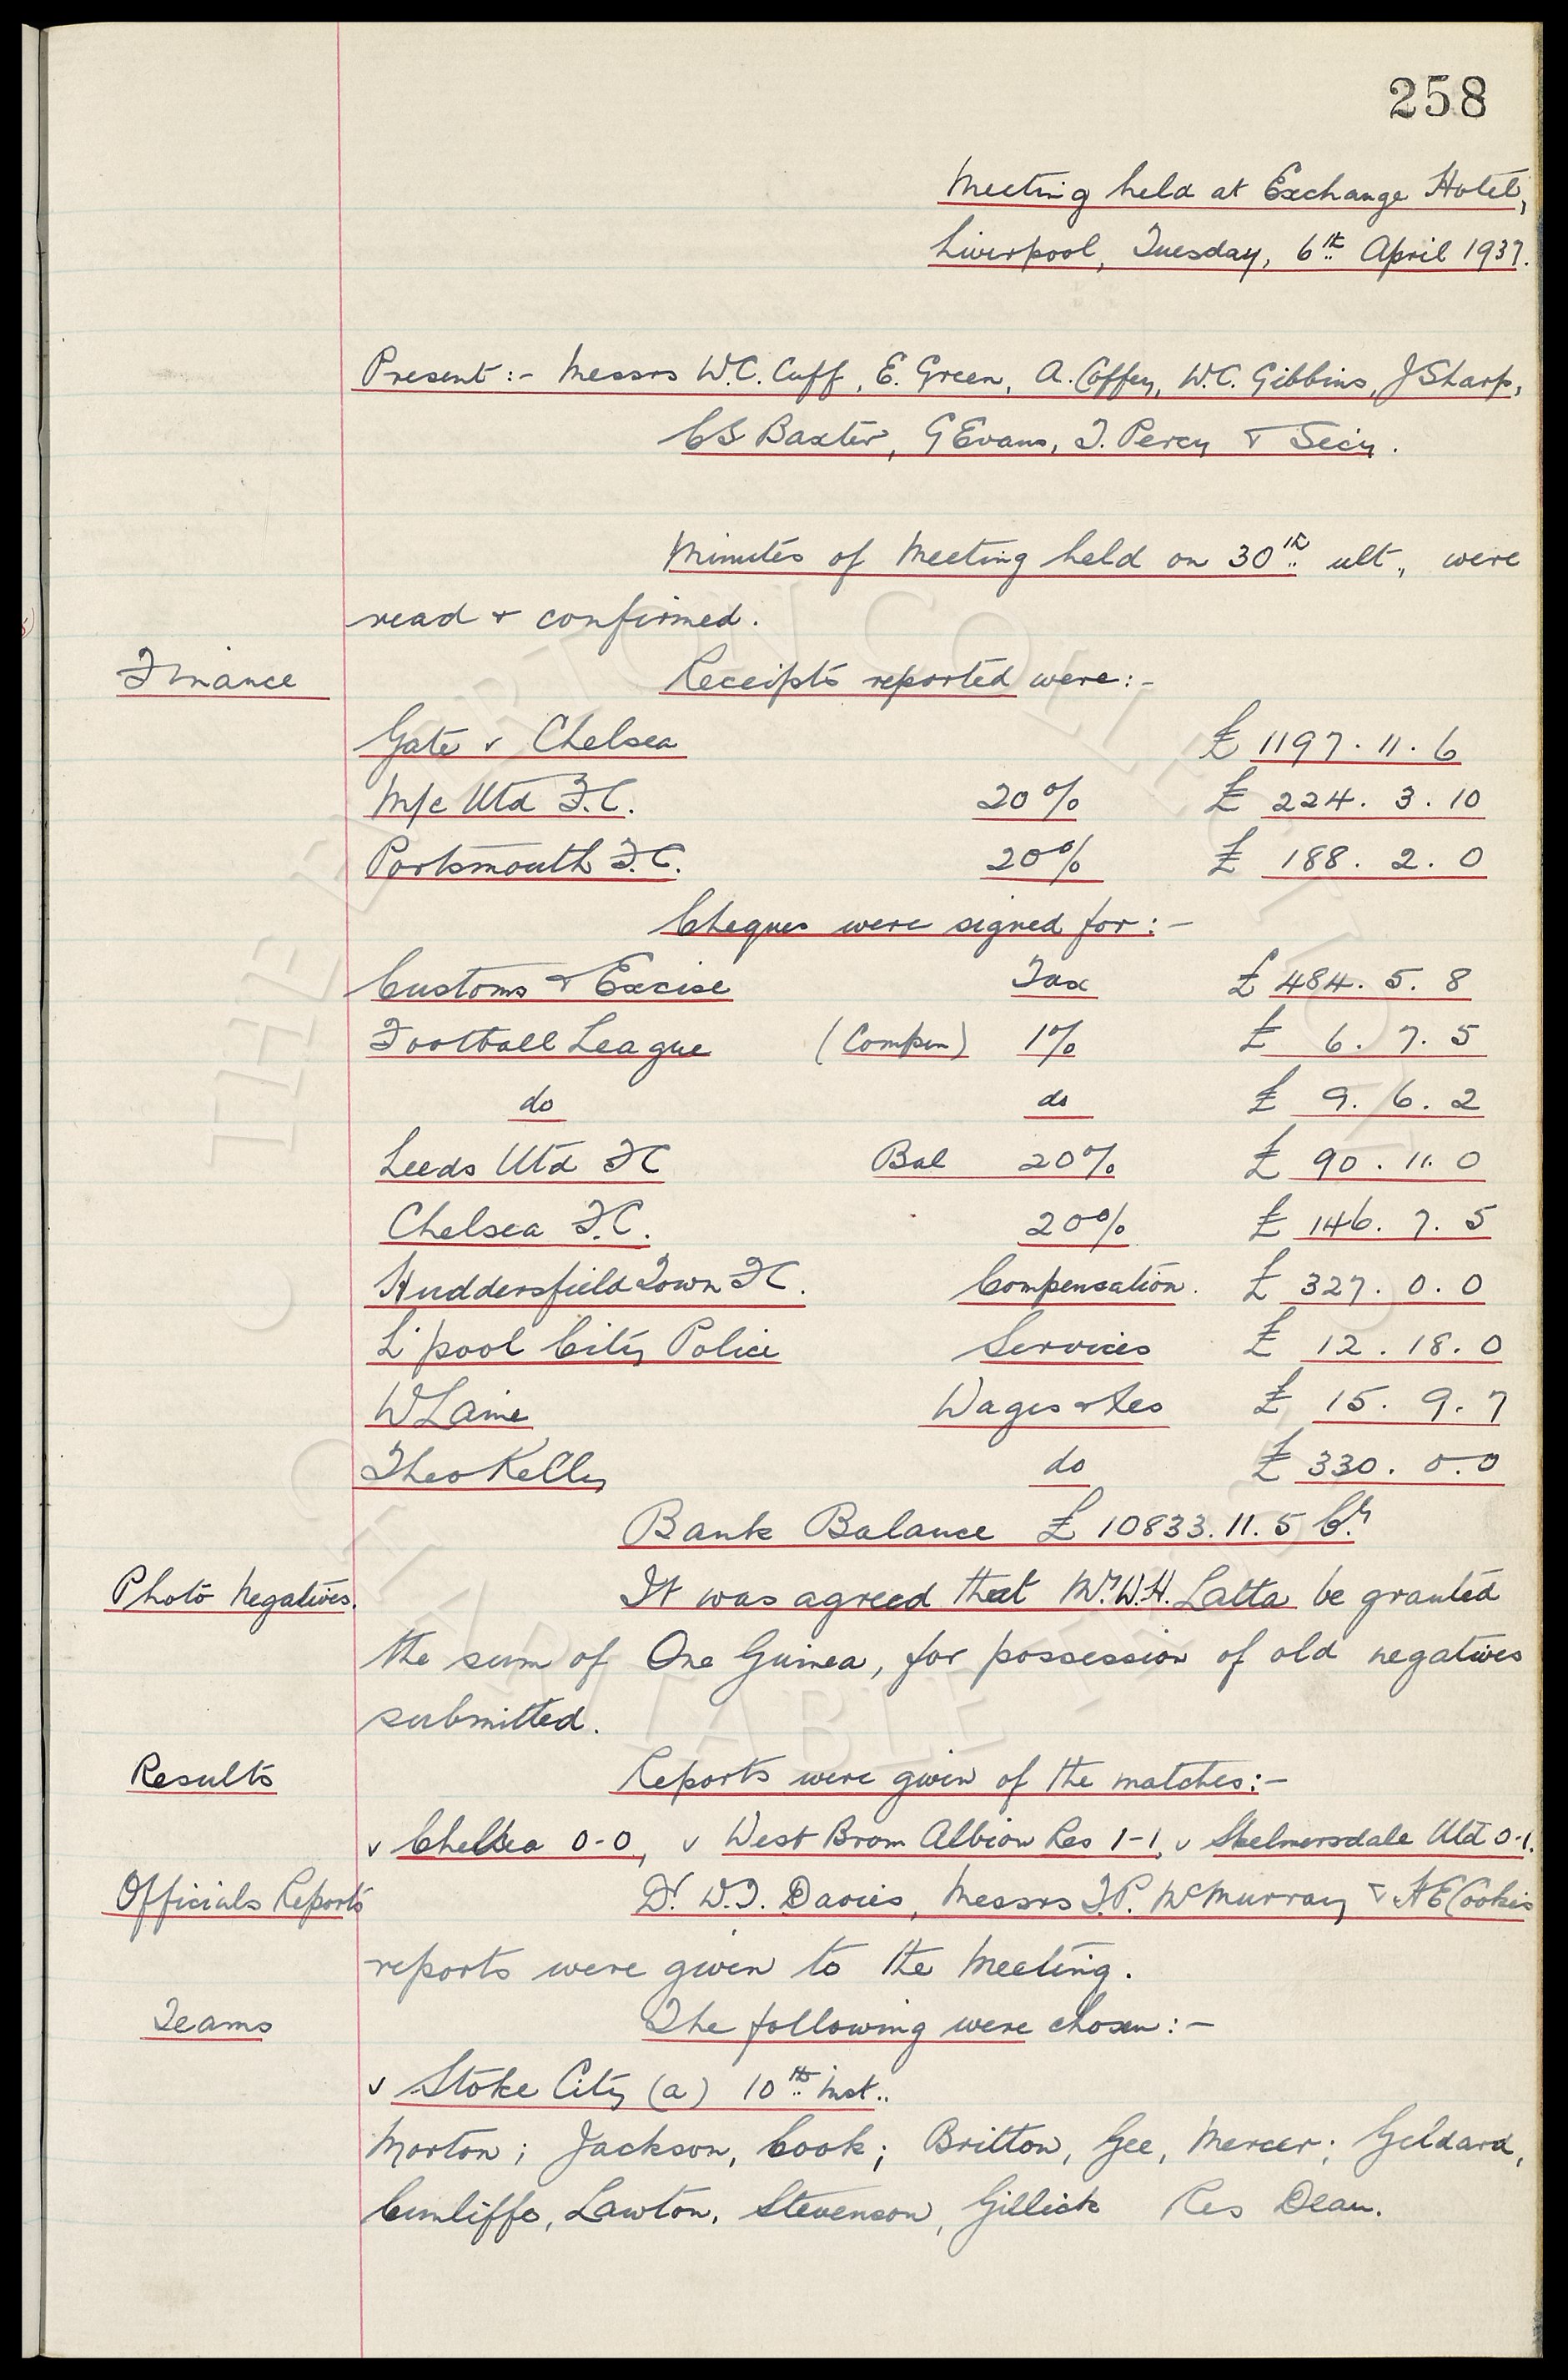 258
Meeting held at Exchange Hotel,
Liverpool, Tuesday, 6th April 1937.
Present:- Messrs W.C. Cuff, E. Green, A. Coffey, W.C. Gibbins, J Sharp,
C S Baxter, G Evans, T. Percy & Secy.
Minutes of Meeting held on 30th ult., were
read & confirmed.
Finance Receipts reported were:-
Gate v Chelsea £ 1197. 11. 6
M/c Utd F.C. 20% £ 224. 3. 10
Portsmouth F.C. 20% £ 188. 2. 0
Cheques were signed for:-
Customs & Excise Tax £ 484. 5. 8
Football League (Compen) 1% £ 6. 7. 5
do do £ 9. 6. 2
Leeds Utd FC Bal 20% £ 90. 11. 0
Chelsea F.C. 20% £ 146. 7. 5
Huddersfield Town FC. Compensation. £ 327. 0. 0
L'pool City Police Services £ 12. 18. 0
W Laine Wages &c £ 15. 9. 7
Theo Kelly do £ 330. 0. 0
Bank Balance £ 10833. 11. 5 Cr
Photo Negatives. It was agreed that Mr. W.H. Latta be granted
the sum of One Guinea, for possession of old negatives
submitted.
Results Reports were given of the matches:-
v Chelsea 0-0, v West Brom Albion Res 1-1, v Skelmersdale Utd 0-1.
Officials Reports Dr. W.T. Davies, Messrs T.P. McMurray & H E Cookes
reports were given to the Meeting.
Teams The following were chosen:-
v Stoke City (a) 10th inst..
Morton; Jackson, Cook; Britton, Gee, Mercer; Geldard,
Cunliffe, Lawton, Stevenson, Gillick Res Dean.
THE EVERTON COLLECTION
CHARITABLE TRUST